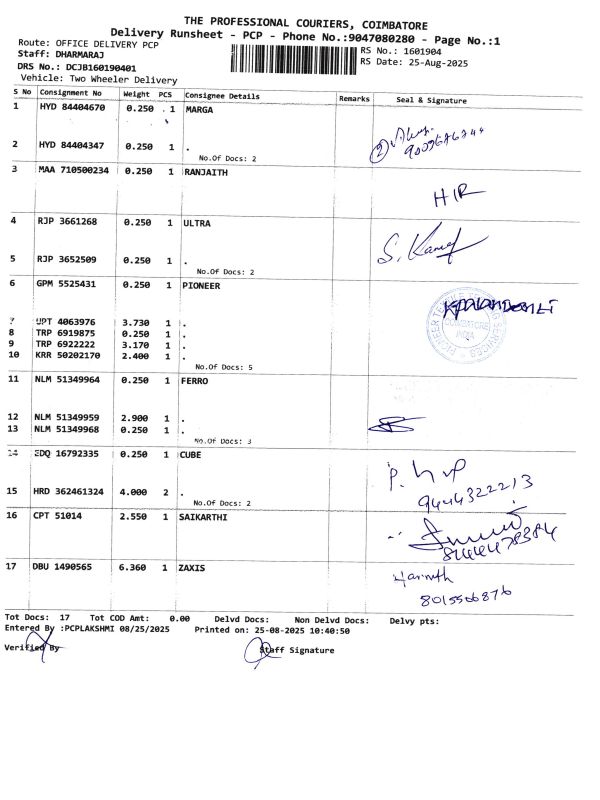 THE PROFESSIONAL COURIERS, COIMBATORE
Delivery Runsheet - PCP - Phone No.:9047080280 - Page No.:1
Route: OFFICE DELIVERY PCP
Staff: DHARMARAJ
RS No.: 1601904
DRS No.: DCJB160190401
RS Date: 25-Aug-2025
Vehicle: Two Wheeler Delivery
S No Consignment No Weight PCS Consignee Details Remarks Seal & Signature
1 HYD 84404670 0.250 1 MARGA
2 HYD 84404347 0.250 1 .
No.Of Docs: 2
3 MAA 710500234 0.250 1 RANJAITH
HIR
4 RJP 3661268 0.250 1 ULTRA
5 RJP 3652509 0.250 1 .
No.Of Docs: 2
6 GPM 5525431 0.250 1 PIONEER
7 UPT 4063976 3.730 1 .
8 TRP 6919875 0.250 1 .
COIMBATORE
9 TRP 6922222 3.170 1 .
INDIA
10 KRR 50202170 2.400 1 .
No.Of Docs: 5
11 NLM 51349964 0.250 1 FERRO
12 NLM 51349959 2.900 1 .
13 NLM 51349968 0.250 1 .
No.Of Docs: 3
14 EDQ 16792335 0.250 1 CUBE
15 HRD 362461324 4.000 2 .
9444322213
No.Of Docs: 2
16 CPT 51014 2.550 1 SAIKARTHI
17 DBU 1490565 6.360 1 ZAXIS
8015506876
Tot Docs: 17 Tot COD Amt: 0.00 Delvd Docs: Non Delvd Docs: Delvy pts:
Entered By :PCPLAKSHMI 08/25/2025 Printed on: 25-08-2025 10:40:50
Verified By Staff Signature